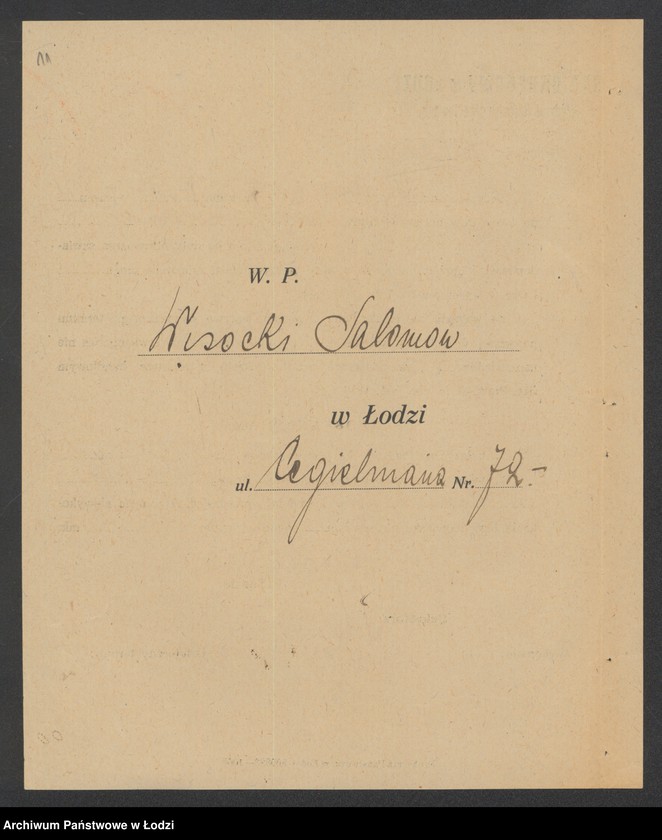 W. P.
Wisocki Salomon
w Łodzi
ul. Cegielniana Nr. 72.-
Archiwum Państwowe w Łodzi